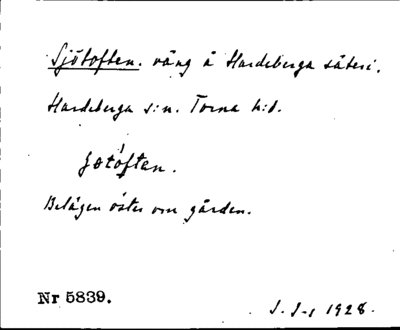 Sjötoften. vång å Hardeberga säteri.
Hardeberga s:n. Torna h:d.
Belägen öster om gården.
Nr 5839.
1928.